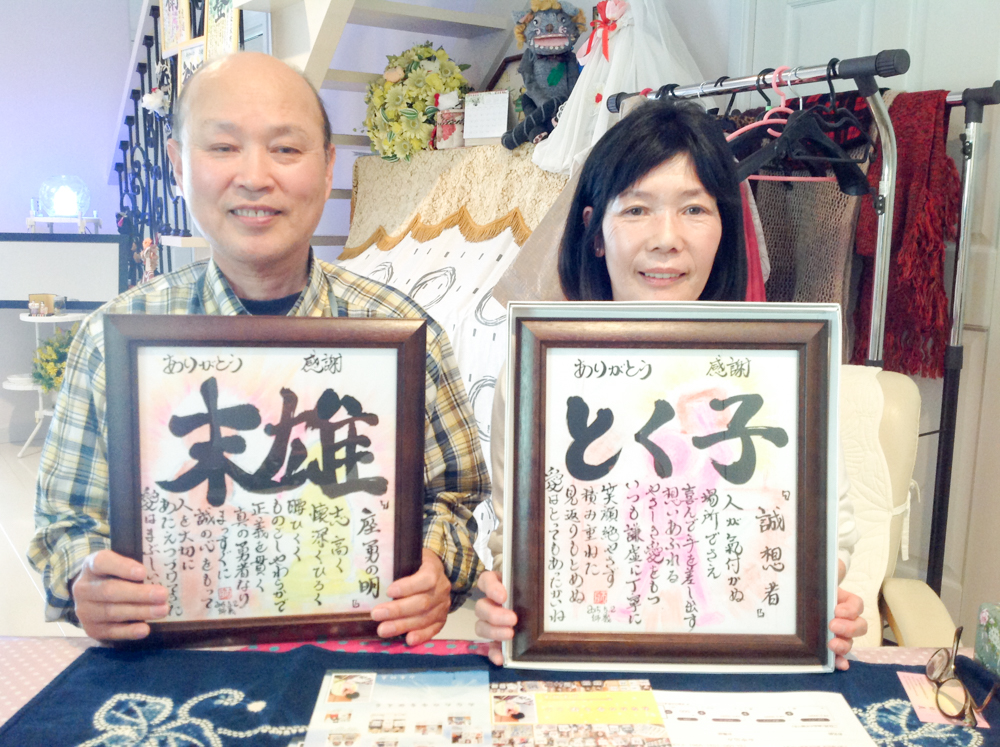 ありがとう 感謝
末雄
『座勇の明』
志高く
懐深くひろく
腰ひくく
ものごしやわらかで
正義を貫く
真の勇者なり
まっすぐに
誠の心をもって
人を大切に
あたえつづけた
愛はまぶしい
ありがとう 感謝
とく子
『誠想者』
人が気付かぬ
場所でさえ
喜んで手を差し出す
想いあふれる
やさしき愛をもつ
いつも謙虚に丁寧に
笑顔絶やさず
積み重ねた
見返りもとめぬ
愛はとってもあったかいね